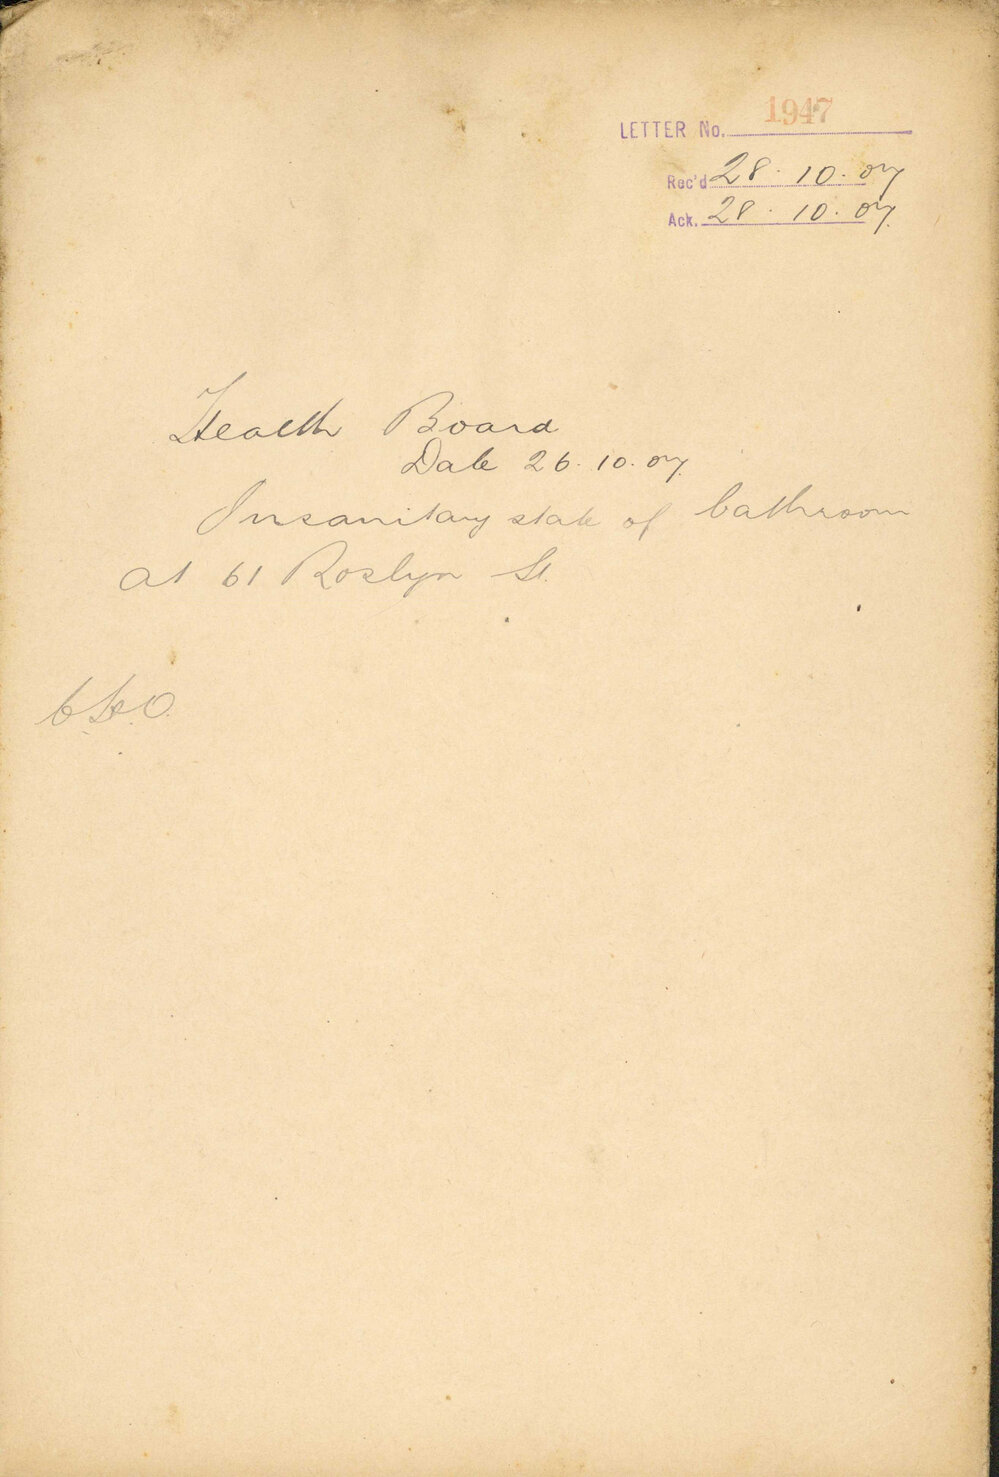 LETTER No. 1947
Rec'd 28. 10. 07
Ack. 28. 10. 07.
Health Board
Date 26. 10. 07.
Insanitary state of bathroom
at 61 Roslyn St.
C.H.O.